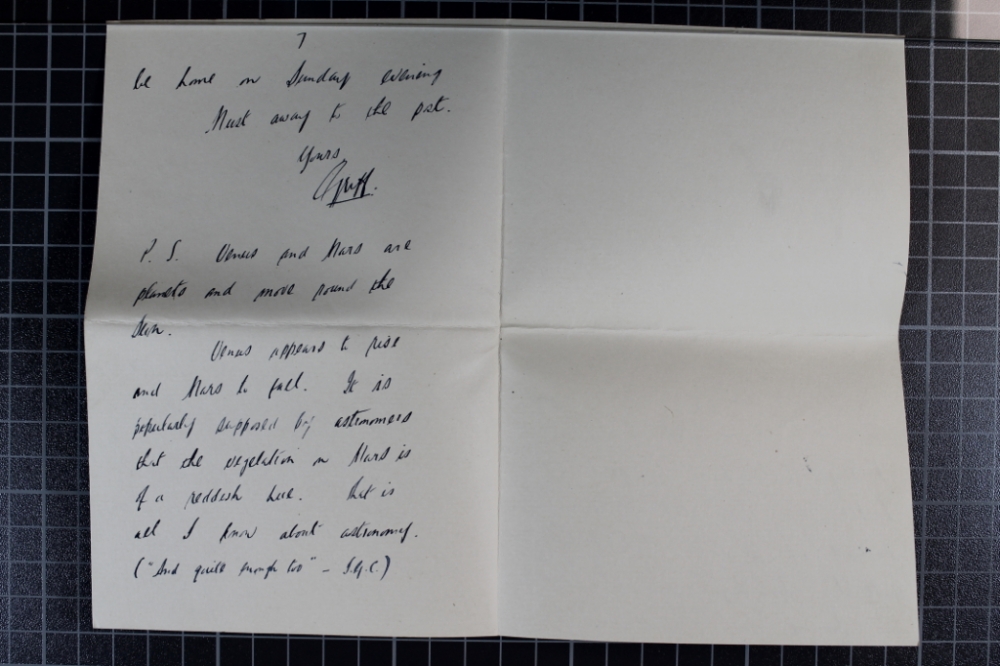 7
be home on Sunday evening
Must away to the post.
Yours,
P. S. Venus and Mars are
planets and move round the
Sun.
Venus appears to rise
and Mars to fall. It is
popularly supposed by astronomers
that the vegetation on Mars is
of a reddish hue. That is
all I know about astronomy.
("And quite enough too" -